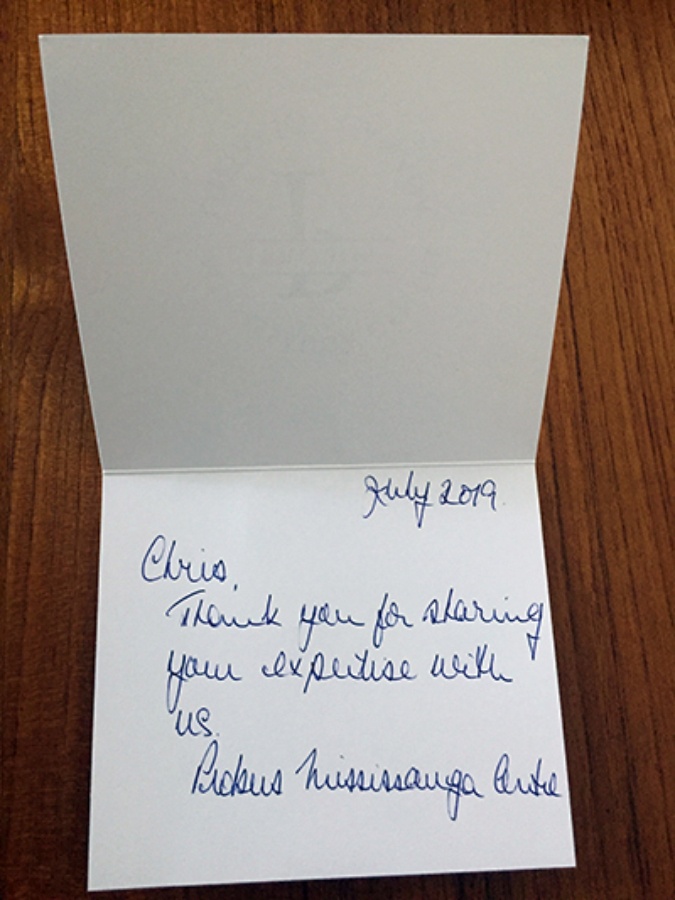 July 2019.
Chris,
Thank you for sharing
your expertise with
us.
Probus Mississauga Centre